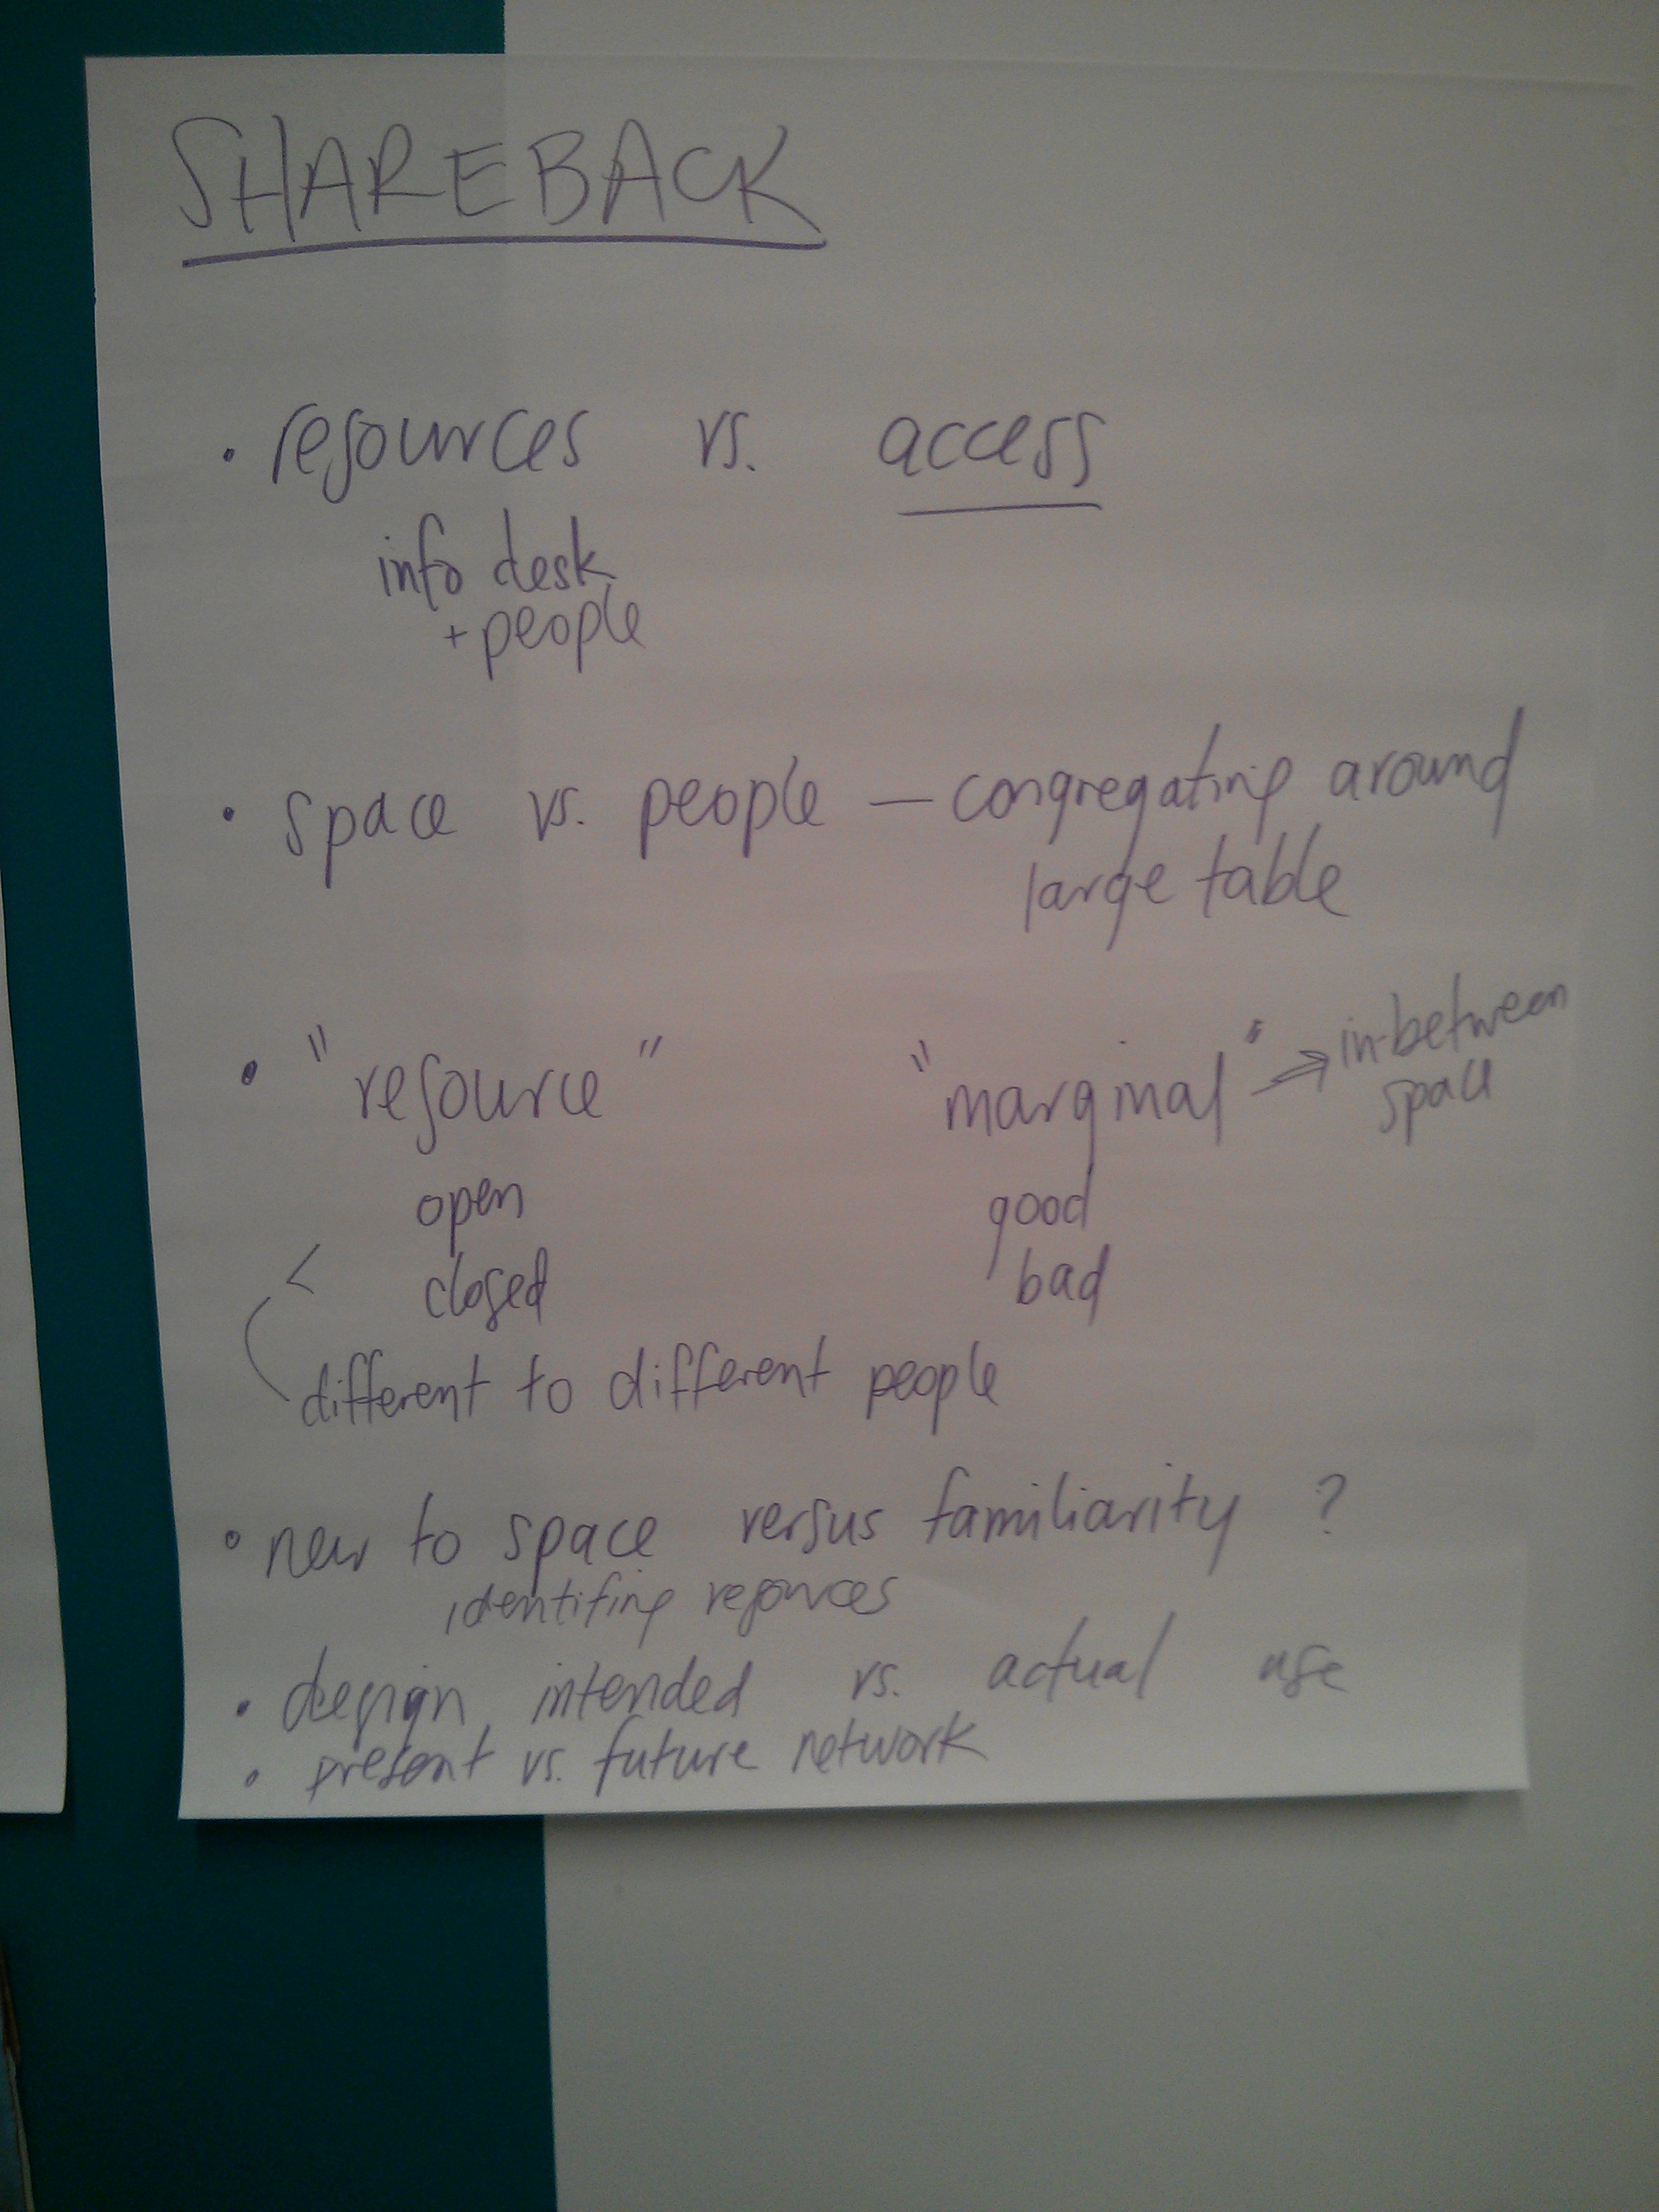 SHAREBACK
• resources vs. access
info desk
+ people
• space vs. people — congregating around
large table
• "resource" "marginal" → in-between
space
open good
closed bad
different to different people
• new to space versus familiarity ?
identifing resources
• design intended vs. actual use
• present vs. future network